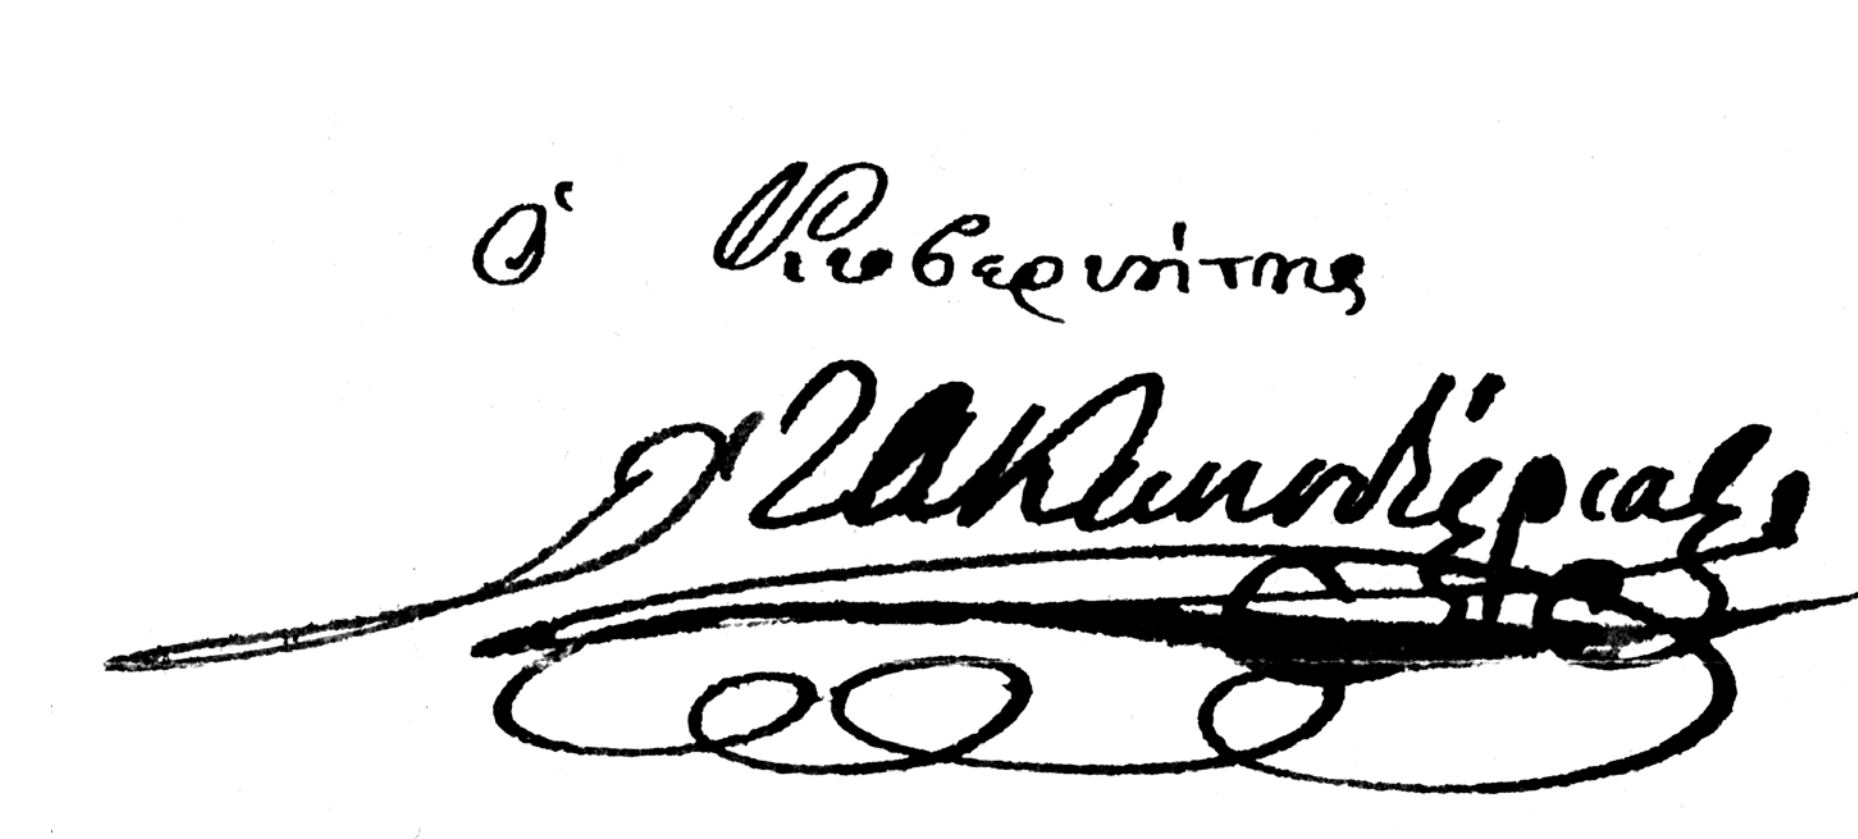 ὁ Κυβερνήτης
Ι Α Καποδίστριας